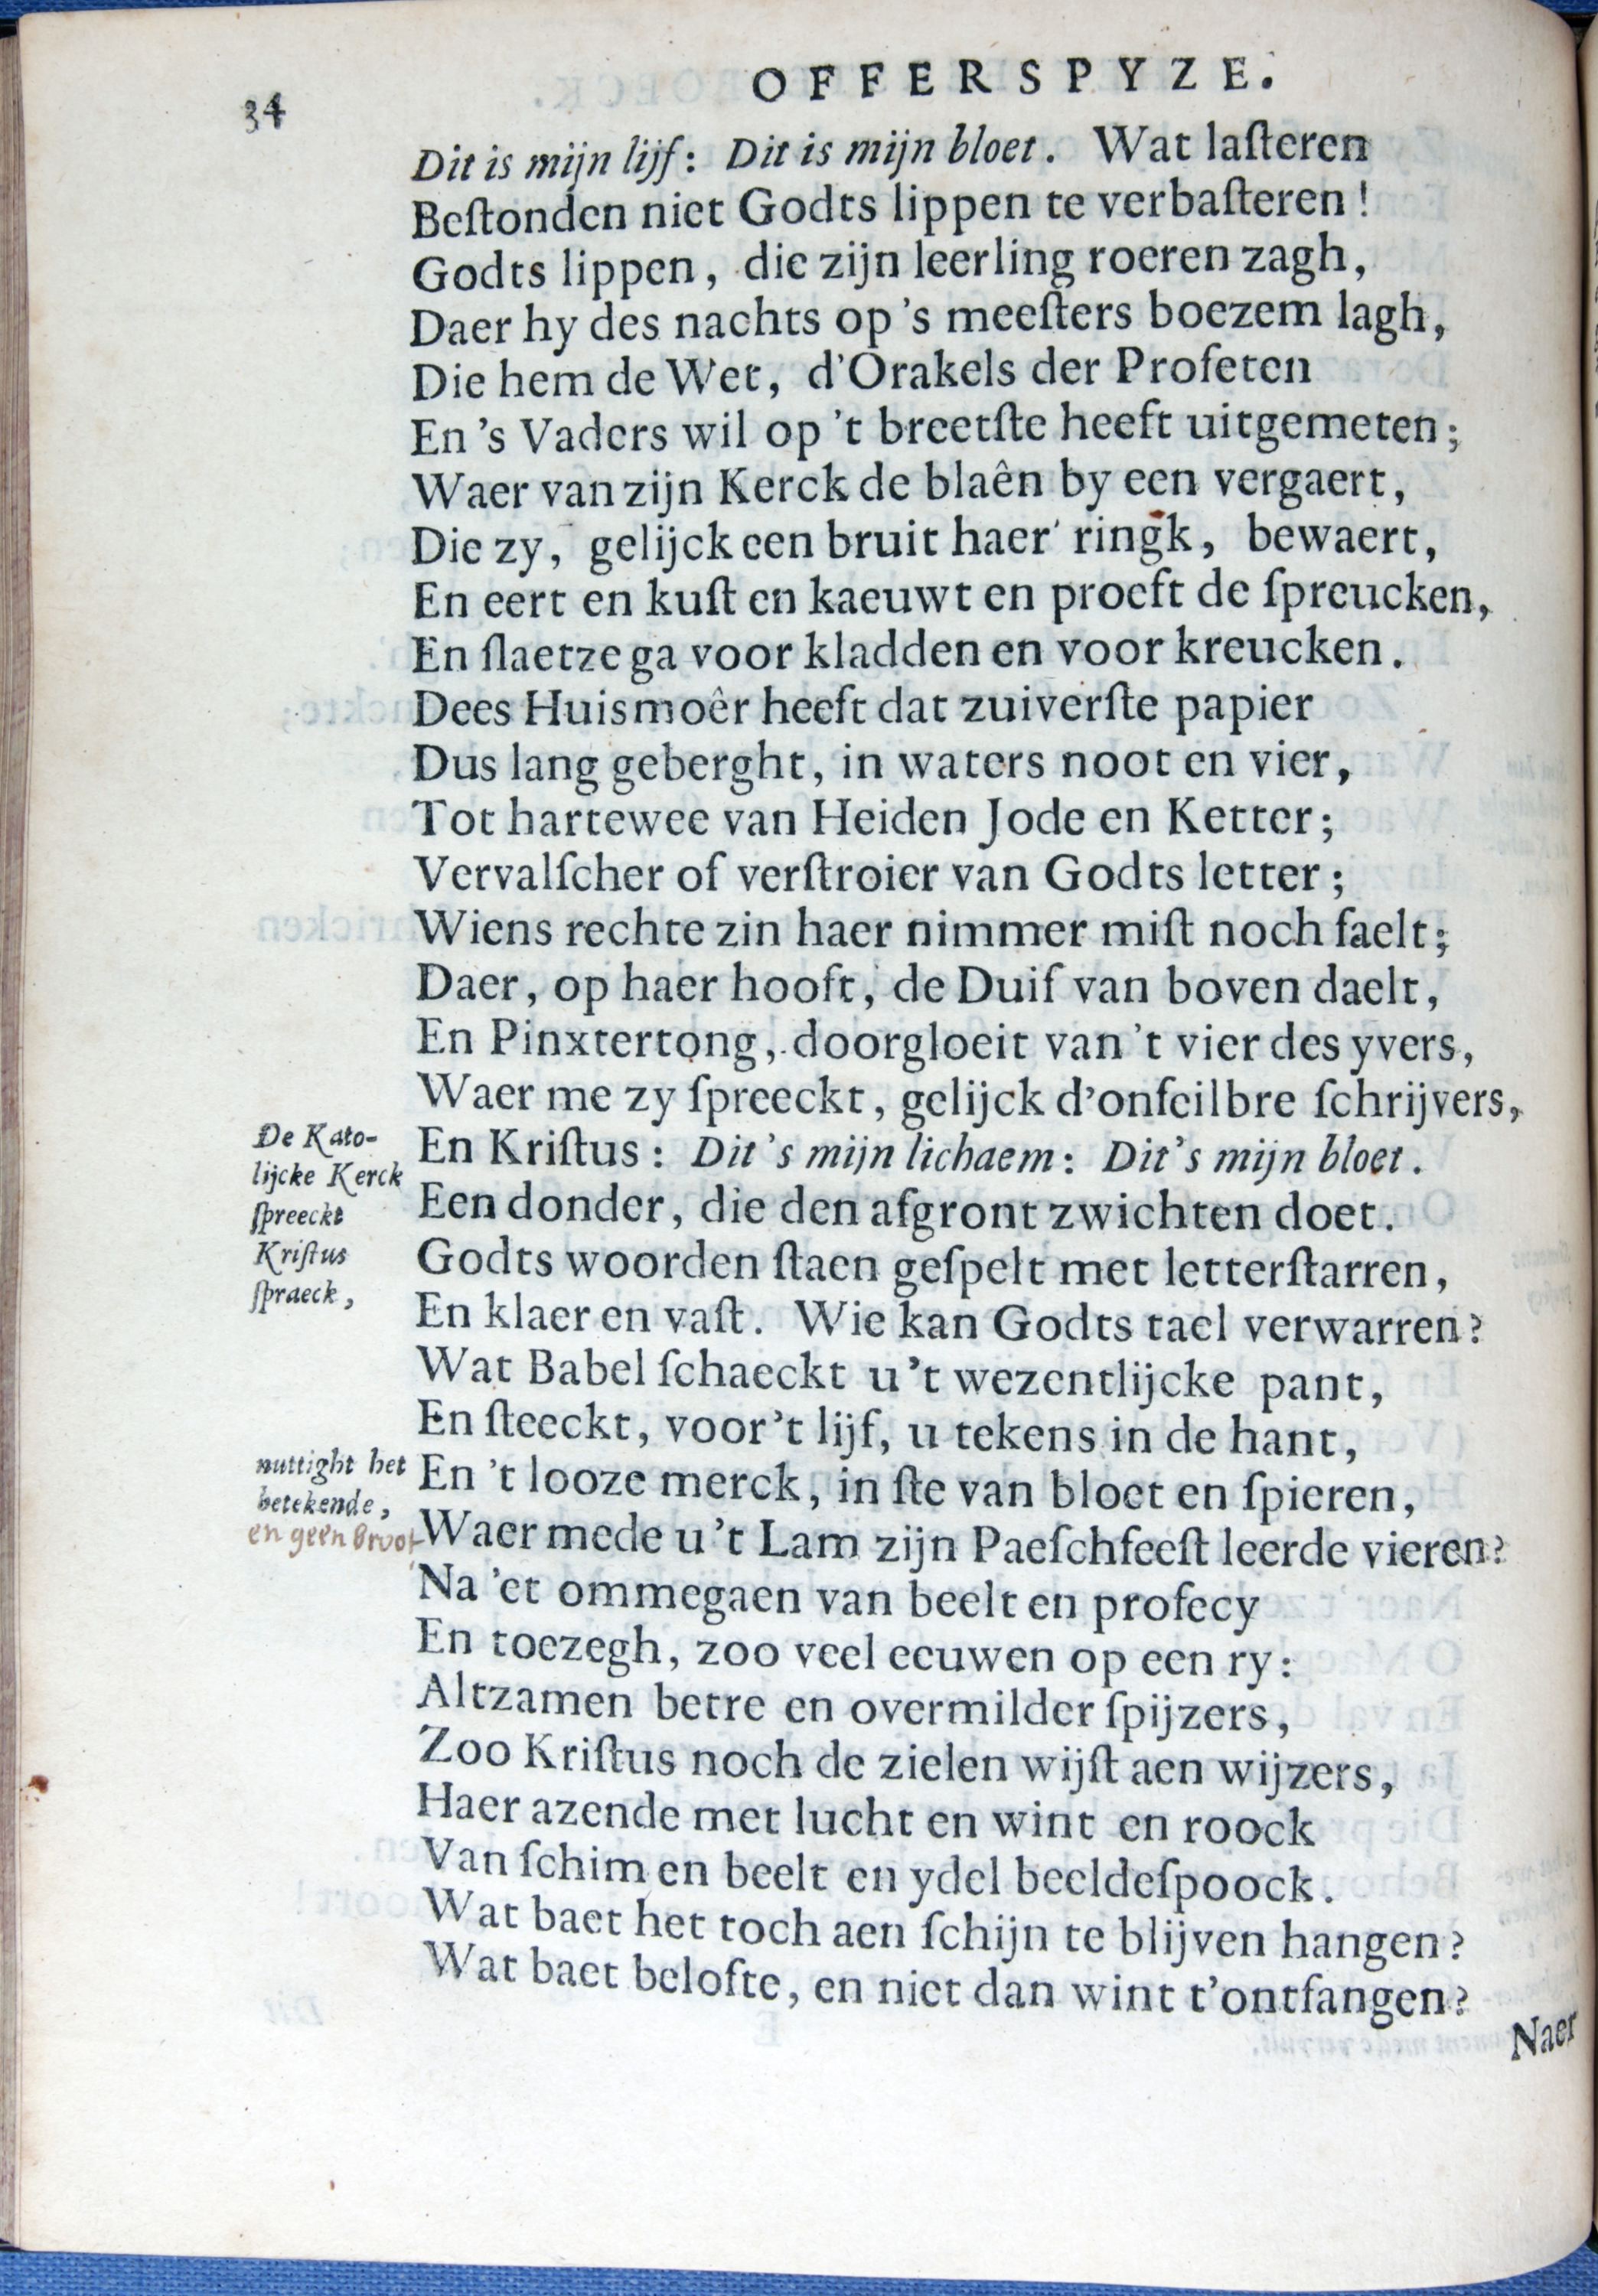 34
OFFERSPYZE.
Dit is mijn lijf: Dit is mijn bloet. Wat laſteren
Beſtonden niet Godts lippen te verbaſteren!
Godts lippen, die zijn leerling roeren zagh,
Daer hy des nachts op 's meeſters boezem lagh,
Die hem de Wet, d'Orakels der Profeten
En 's Vaders wil op 't breetſte heeft uitgemeten;
Waer van zijn Kerck de blaên by een vergaert,
Die zy, gelijck een bruit haer' ringk, bewaert,
En eert en kuſt en kaeuwt en proeft de ſpreucken,
En ſlaetze ga voor kladden en voor kreucken.
Dees Huismoêr heeft dat zuiverſte papier
Dus lang geberght, in waters noot en vier,
Tot hartewee van Heiden Jode en Ketter;
Vervalſcher of verſtroier van Godts letter;
Wiens rechte zin haer nimmer miſt noch faelt;
Daer, op haer hooft, de Duif van boven daelt,
En Pinxtertong, doorgloeit van 't vier des yvers,
Waer me zy ſpreeckt, gelijck d'onfeilbre ſchrijvers,
En Kriſtus: Dit 's mijn lichaem: Dit 's mijn bloet.
Een donder, die den afgront zwichten doet.
Godts woorden ſtaen geſpelt met letterſtarren,
En klaer en vaſt. Wie kan Godts tael verwarren?
Wat Babel ſchaeckt u 't wezentlijcke pant,
En ſteeckt, voor 't lijf, u tekens in de hant,
En 't looze merck, in ſte van bloet en ſpieren,
Waer mede u 't Lam zijn Paeſchfeeſt leerde vieren?
Na 'et ommegaen van beelt en profecy
En toezegh, zoo veel eeuwen op een ry:
Altzamen betre en overmilder ſpijzers,
Zoo Kriſtus noch de zielen wijſt aen wijzers,
Haer azende met lucht en wint en roock
Van ſchim en beelt en ydel beeldeſpoock.
Wat baet het toch aen ſchijn te blijven hangen?
Wat baet belofte, en niet dan wint t'ontfangen?
Naer
De Kato-
lijcke Kerck
ſpreeckt
Kriſtus
ſpraeck,
nuttight het
betekende,
en geen broot